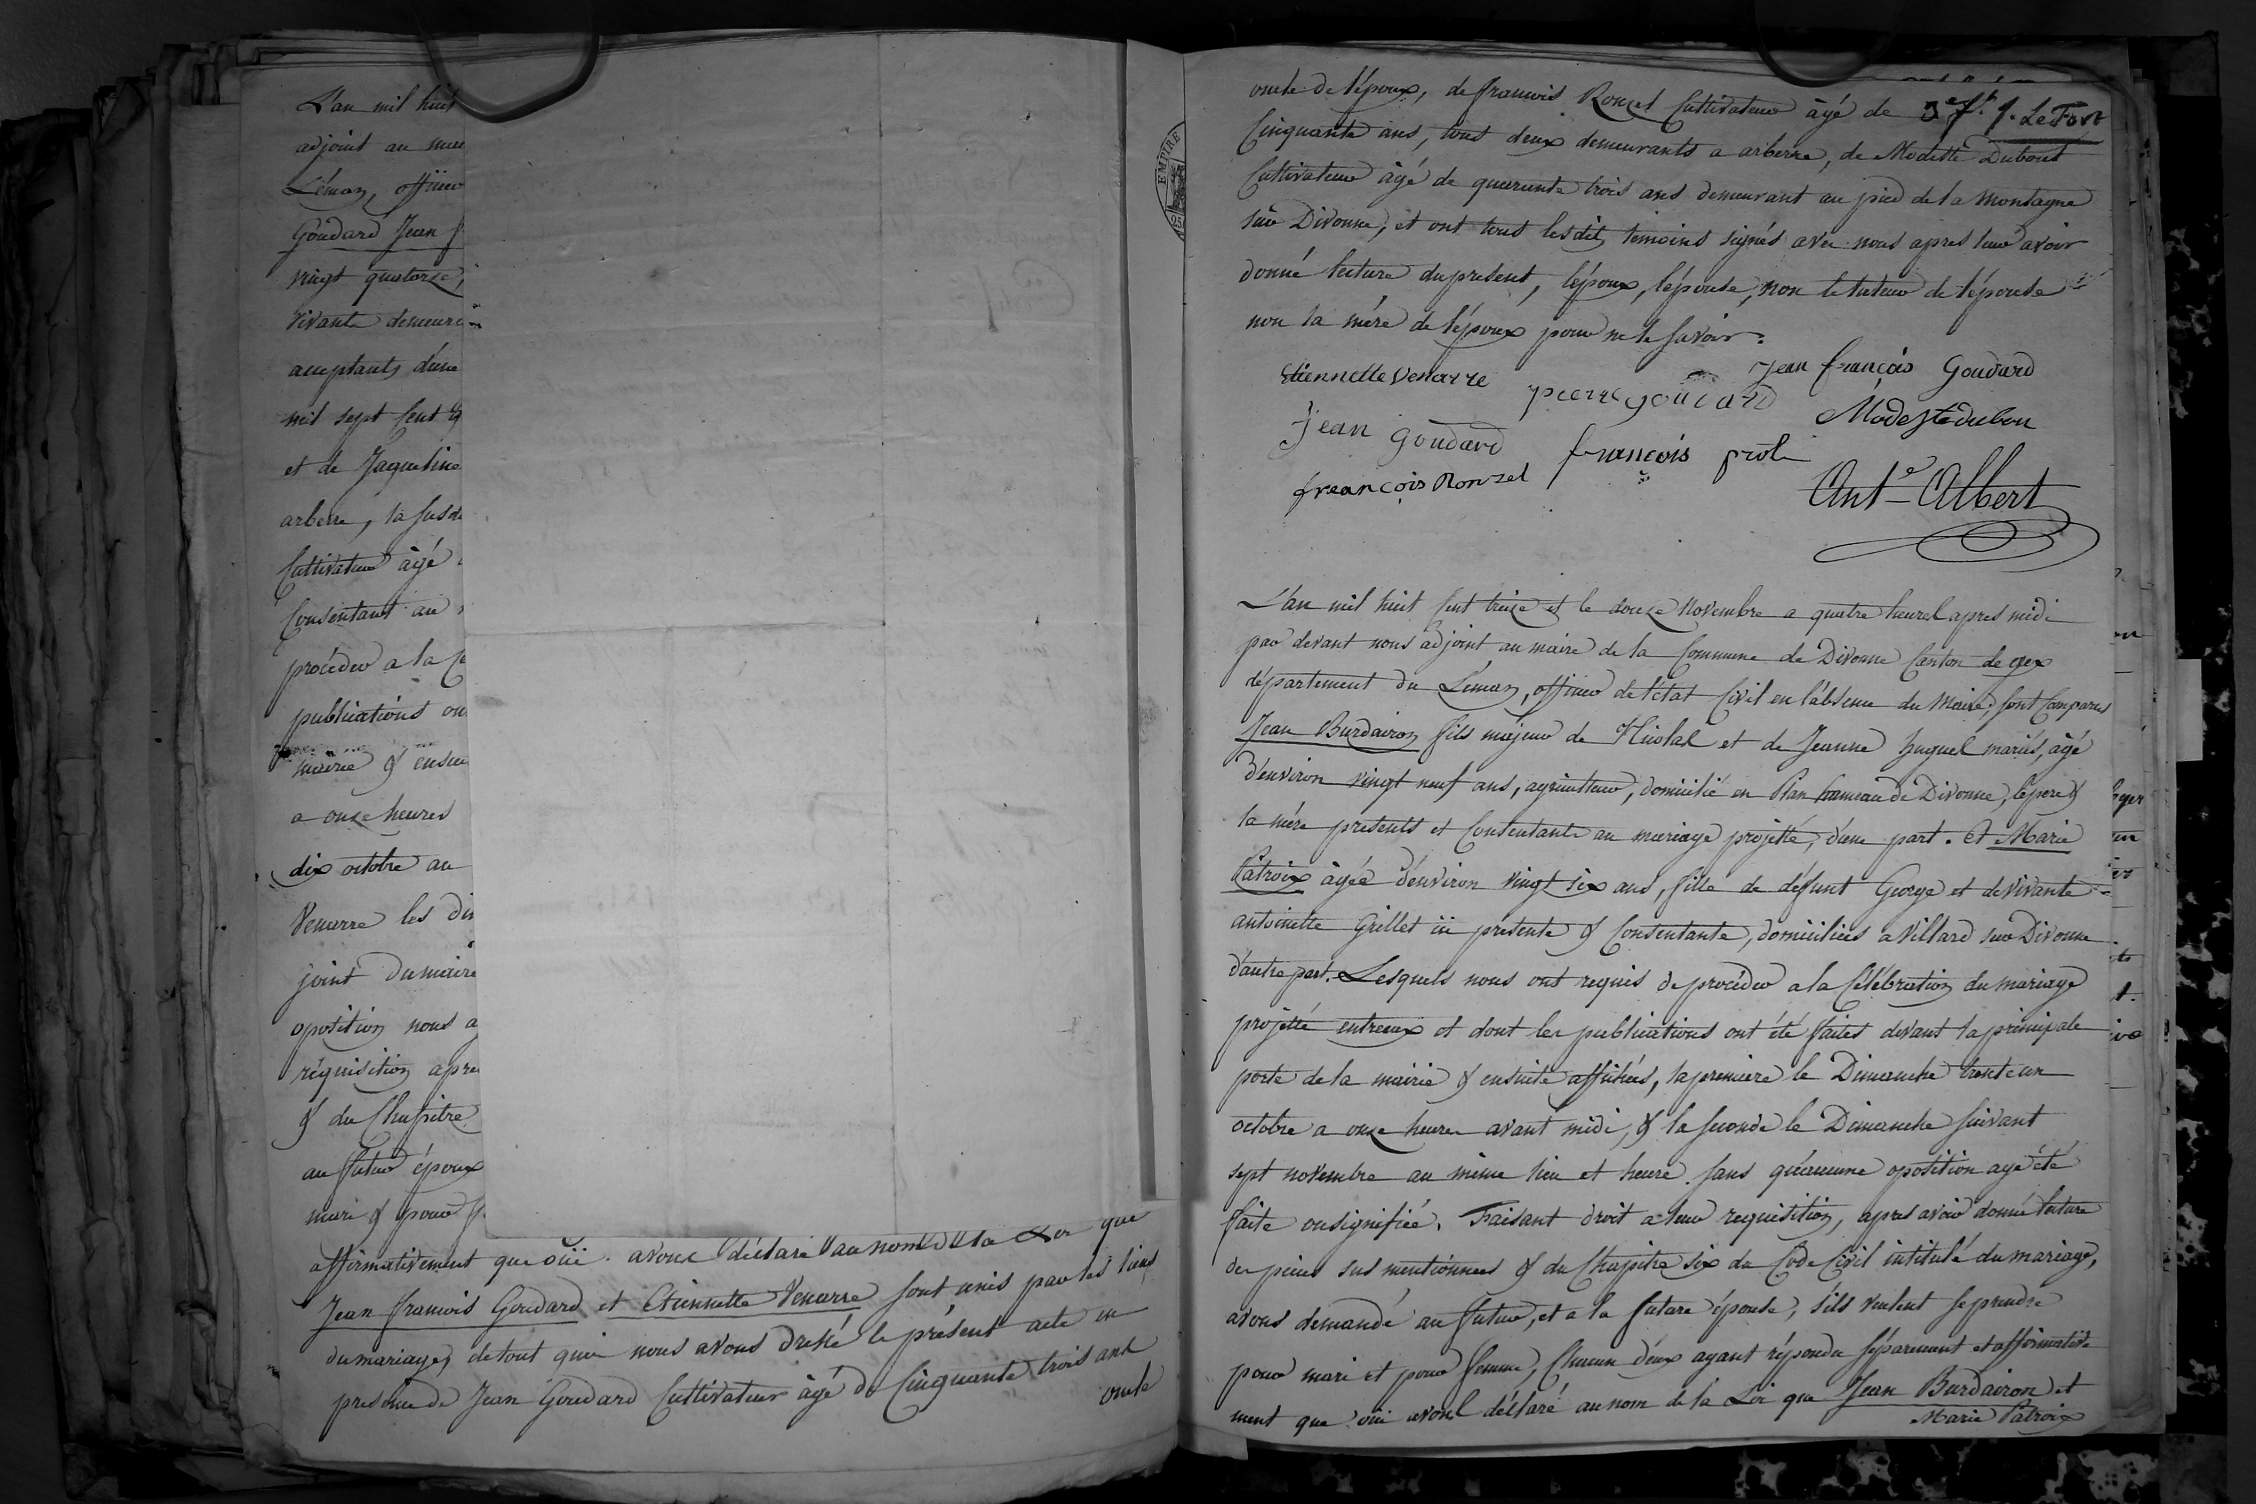 L'an mil huit
adjoint au mai
Léman, officier
Goudard Jean f
vingt quatorze,
vivante demeura
acceptants d'une
mil sept cent q
et de Jaqueline
arberre, la susd
Cultivateur âgé
Consentant au
procéder a la Ce
publications on
mairie & ensui
a onze heures
dix octobre au
Venarre les di
joint du maire
oposition nous a
réquisition apre
& du Chapitre
au futur époux
mari & pour f
affirmativement que oüi. avons déclaré au nom de la Loi que
Jean francois Goudard et Etiennette Venarre sont unis par les liens
du mariage, de tout quoi nous avons dressé le présent acte en
présence de Jean Goudard Cultivateur âgé de Cinquante trois ans
oncle
oncle de l'époux, de francois Ronzel Cultivateur âgé de 3e ft. J. Le Fort
Cinquante ans, tous deux demeurants a arberre, de Modeste Dubout
Cultivateur âgé de quarante trois ans demeurant au pied de la Montagne
sur Divonne, et ont tous lesdits temoins signés avec nous apres leur avoir
donné lecture du present, l'époux, l'épouse, non le tuteur de l'épouse
non la mére de l'époux pour ne le savoir.
Etiennette Venarre
Jean françois Goudard
pierre goudard
Modeste dubou
Jean Goudard
françois prot
françois Ronzel
Ant.e Albert
EMPIRE
L'an mil huit cent treize et le douze Novembre a quatre heures apres midi
par devant nous adjoint au maire de la Commune de Divonne Canton de gex
département du Léman, officier de l'état Civil en l'absence du Maire, sont Comparus
Jean Burdairon fils majeur de Nicolas et de Jeanne huguel mariés, âgé
d'environ vingt neuf ans, agriculteur, domicilié en Plan hameau de Divonne, le pere &
la mére presents et Consentants au mariage projetté, d'une part. Et Marie
Patroix âgée d'environ vingt six ans, fille de défunt George et de vivante
antoinette Grillet ici presente & Consentante, domiciliées a Villard sur Divonne
d'autre part. Lesquels nous ont requis de procéder a la Célébration du mariage
projetté entreeux et dont les publications ont été faites devant la principale
porte de la mairie & ensuite affichées, la premiere le Dimanche trente un
octobre a onze heures avant midi, & la seconde le Dimanche suivant
sept novembre au même lieu et heure. sans qu'aucune oposition aye été
faite ou signifiée. Faisant droit a leur requisition, apres avoir donné lecture
des pieces sus mentionnees & du Chapitre six du Code Civil intitulé du mariage,
avons demandé au futur, et a la future épouse, s'ils veulent se prendre
pour mari et pour femme, Chacun d'eux ayant répondu séparement et affirmative
ment que oui avons déclaré au nom de la Loi que Jean Burdairon et
Marie Patroix